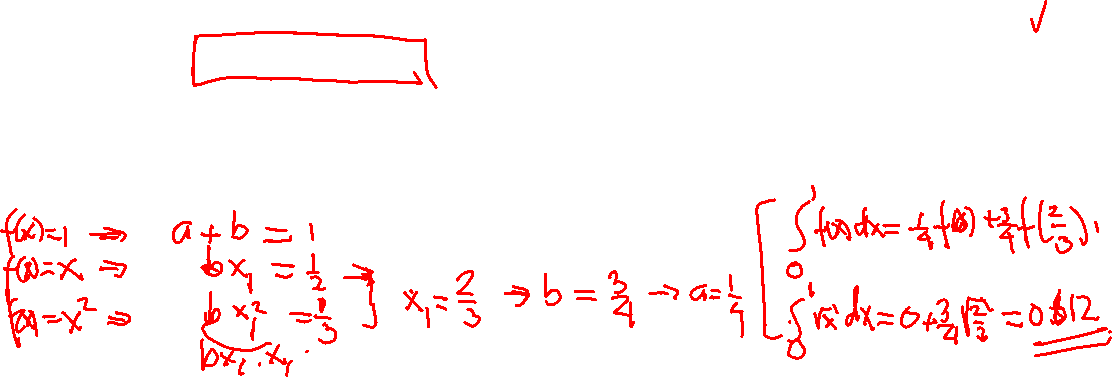 f(x)=1 ⇒ a+b=1
f(x)=x ⇒ bx₁=1/2
f(x)=x² ⇒ bx₁²=1/3
bx₁.x₁.
→ x₁=2/3 → b=3/4 → a=1/4
∫₀¹ f(x)dx=1/4 f(0)+3/4 f(2/3),
∫₀¹ √x dx=0+3/4 √2/3=0.612